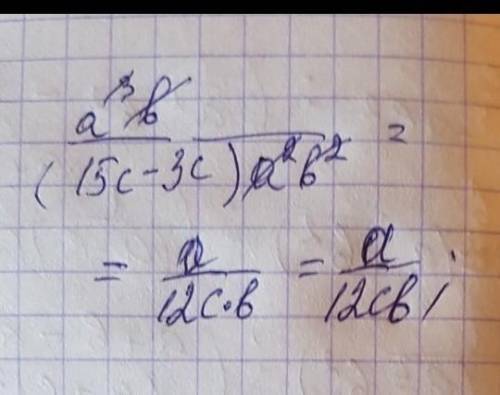 a³b
(15c-3c)a²b² =
= a/12c·b = a/12cb;